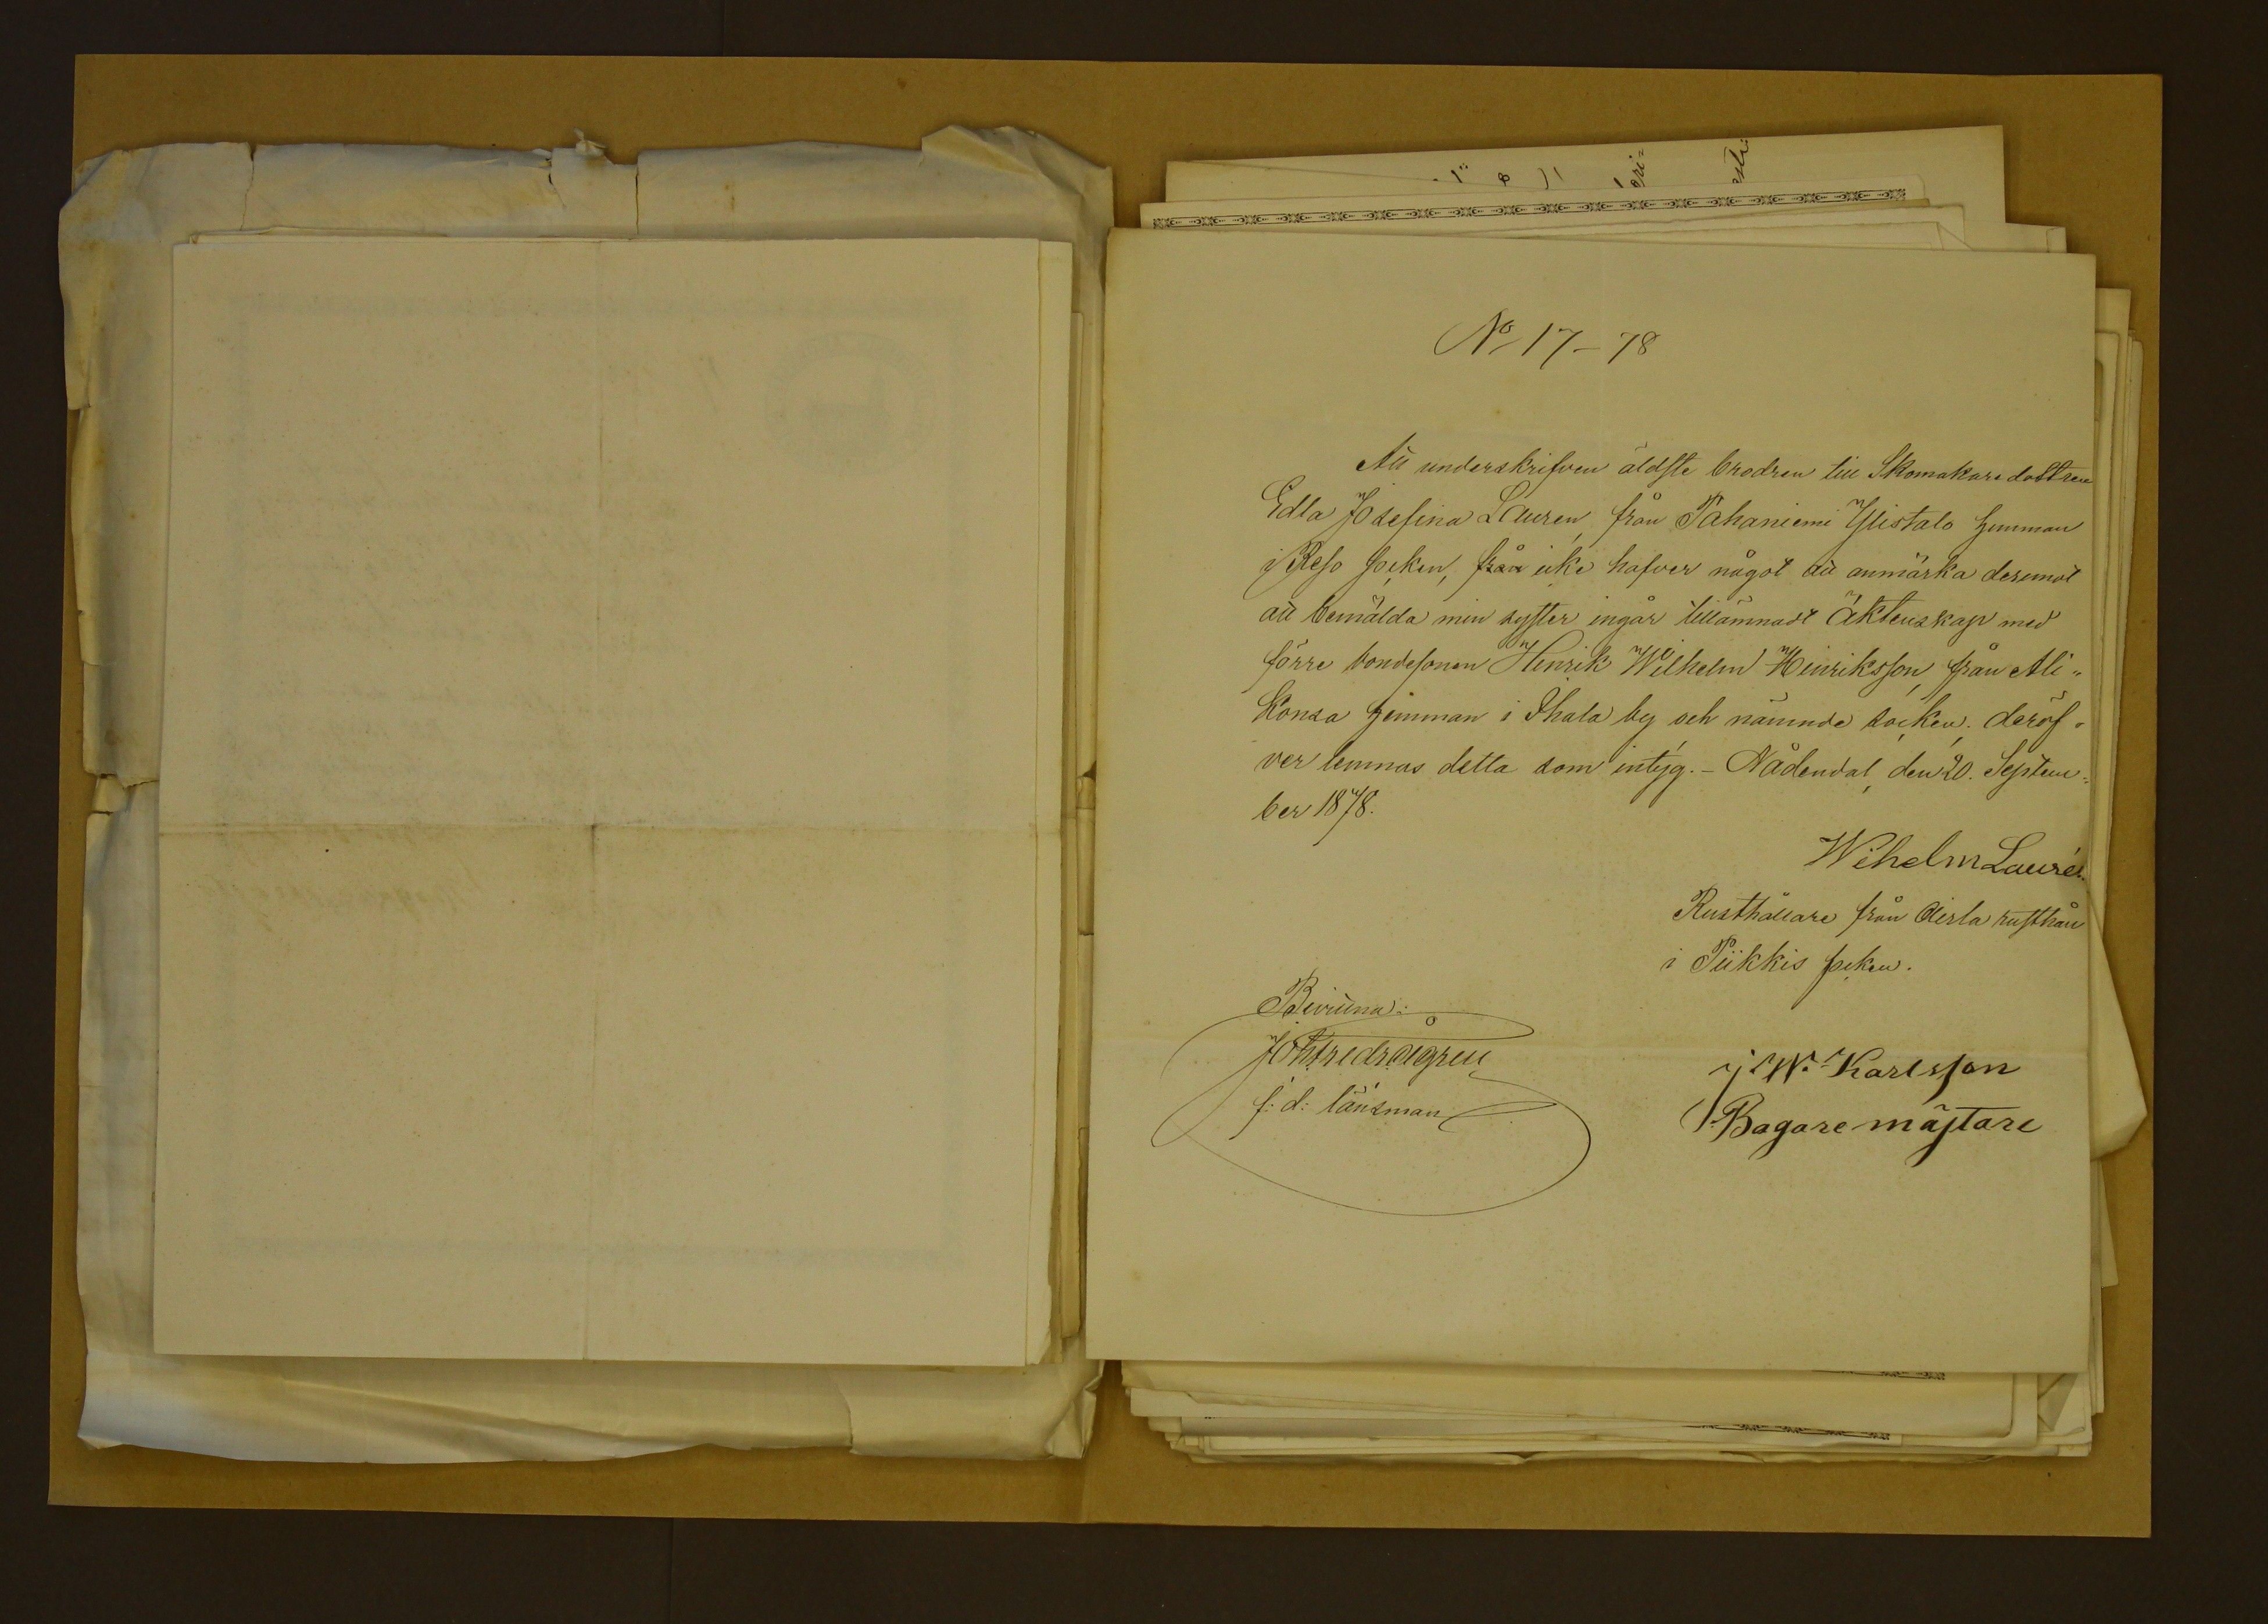 No 17-78
Att underskrifven äldste brodren till Skomakaredottren
Edla Josefina Lauren, från Pahaniemi Ylistalo hemman
i Reso socken, från icke hafver något att anmärka deremot
att bemälda min syster ingår tillämnadt äktenskap med
förre bondesonen Henrik Wilhelm Henriksson, från Ali-
Konsa hemman i Ihala by och nämnde socken, deröf-
ver lemnas detta som intyg. - Nådendal, den 20. Septem-
ber 1878.
Wihelm Laurén.
Rusthållare från Airla rusthåll
i Piikkis socken.
Bevittna:
f: d: länsman
J. W. Karlsson
Bagare mästare